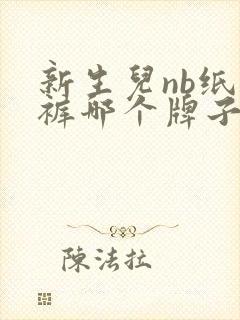 新生兒nb纸
裤哪个牌子
陳法拉